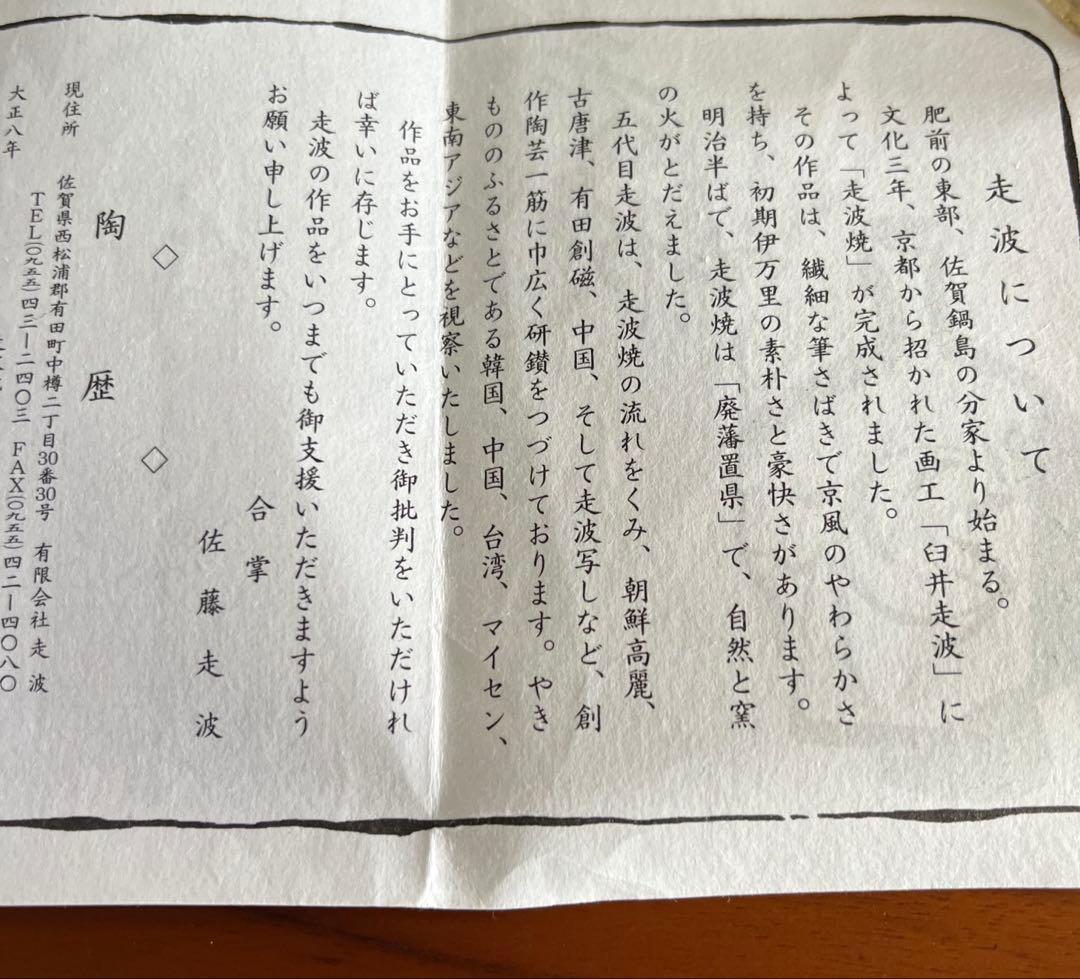 走波について
肥前の東部、佐賀鍋島の分家より始まる。
文化三年、京都から招かれた画工「臼井走波」に
よって「走波焼」が完成されました。
その作品は、繊細な筆さばきで京風のやわらかさ
を持ち、初期伊万里の素朴さと豪快さがあります。
明治半ばで、走波焼は「廃藩置県」で、自然と窯
の火がとだえました。
五代目走波は、走波焼の流れをくみ、朝鮮高麗、
古唐津、有田創磁、中国、そして走波写しなど、創
作陶芸一筋に巾広く研鑚をつづけております。やき
もののふるさとである韓国、中国、台湾、マイセン、
東南アジアなどを視察いたしました。
作品をお手にとっていただき御批判をいただけれ
ば幸いに存じます。
走波の作品をいつまでも御支援いただきますよう
お願い申し上げます。
合掌
佐藤走波
◇ ◇
陶歴
現住所 佐賀県西松浦郡有田町中樽二丁目30番30号 有限会社 走波
TEL(〇九五五)四三ー二四〇三 FAX(〇九五五)四二ー四〇八〇
大正八年